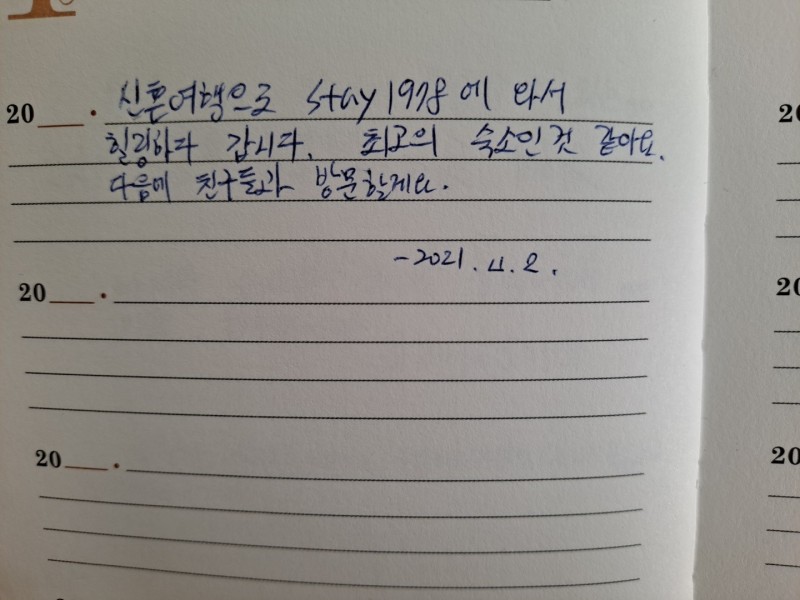 20 . 신혼여행으로 stay1978에 와서
힐링하다 갑니다. 최고의 숙소인것 같아요.
다음에 친구들과 방문할게요.
-2021. 4. 2.
20 .
20 .
20
20
20